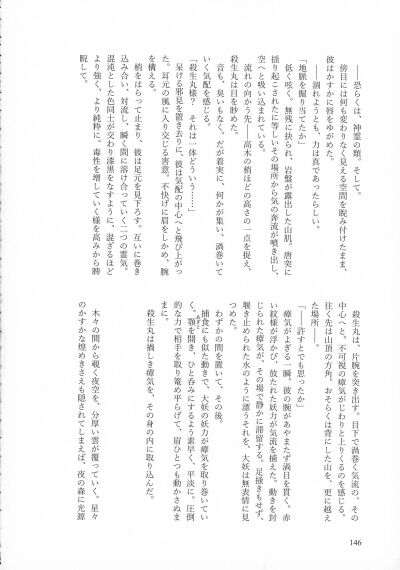 ――恐らくは、神霊の類。そして。
傍目には何も変わりなく見える空間を睨み付けたまま、
彼はかすかに唇をゆがめた。
――溺れようとも、力は真であったらしい。
「地脈を掘り当てたか」
低く呟く。無残に抉られ、岩盤が露出した山肌。唐突に
揺り起こされたに等しいその場所から気の奔流が噴き出し、
空へと吸い込まれている。
流れの向かう先――高木の梢ほどの高さの一点を捉え、
殺生丸は目を眇めた。
音も、臭いもなく。だが着実に、何かが集い、渦巻いて
いく気配を感じる。
「殺生丸様？　それは一体どういう……」
呆ける邪見を置き去りに、彼は気配の中心へと飛び上がっ
た。耳元の風に入り交じる害意。不快げに眉をしかめ、腕
を構える。
梢をはらって止まり、彼は足元を見下ろす。互いに巻き
込み合い、対流し、瞬く間に溶け合っていく二つの霊気。
混沌とした色同士が交わり漆黒をなすように、混ざるほど
より強く、より純粋に、毒性を増していく様を高みから睥
睨して。
殺生丸は、片腕を突き出す。目下で渦巻く気流の、その
中心へと。不可視の瘴気がじわりと上りくるのを感じる。
往く先は山頂の方角。おそらくは背にした山を、更に越え
た場所――。
「――許すとでも思ったか」
瘴気がよぎる一瞬。彼の腕があやまたず渦目を貫く。赤
い紋様が浮かび、放たれた妖力が気流を捕えた。動きを封
じられた瘴気が、その場で静かに滞留する。足掻きもせず、
覗き止められた水のように漂うそれを、大妖は無表情に見
つめた。
わずかの間を置いて、その後。
捕食にも似た動きで、大妖の妖力が瘴気を取り巻いてい
く。顎を開き、ひと呑みにするよう素早く、平淡に。圧倒
的な力で相手を取り篭め平らげて、眉ひとつも動かさぬま
まに。
殺生丸は禍しき瘴気を、その身の内に取り込んだ。
木々の間から覗く夜空を、分厚い雲が覆っていく。星々
のかすかな煌めきさえも隠されてしまえば、夜の森に光源
146